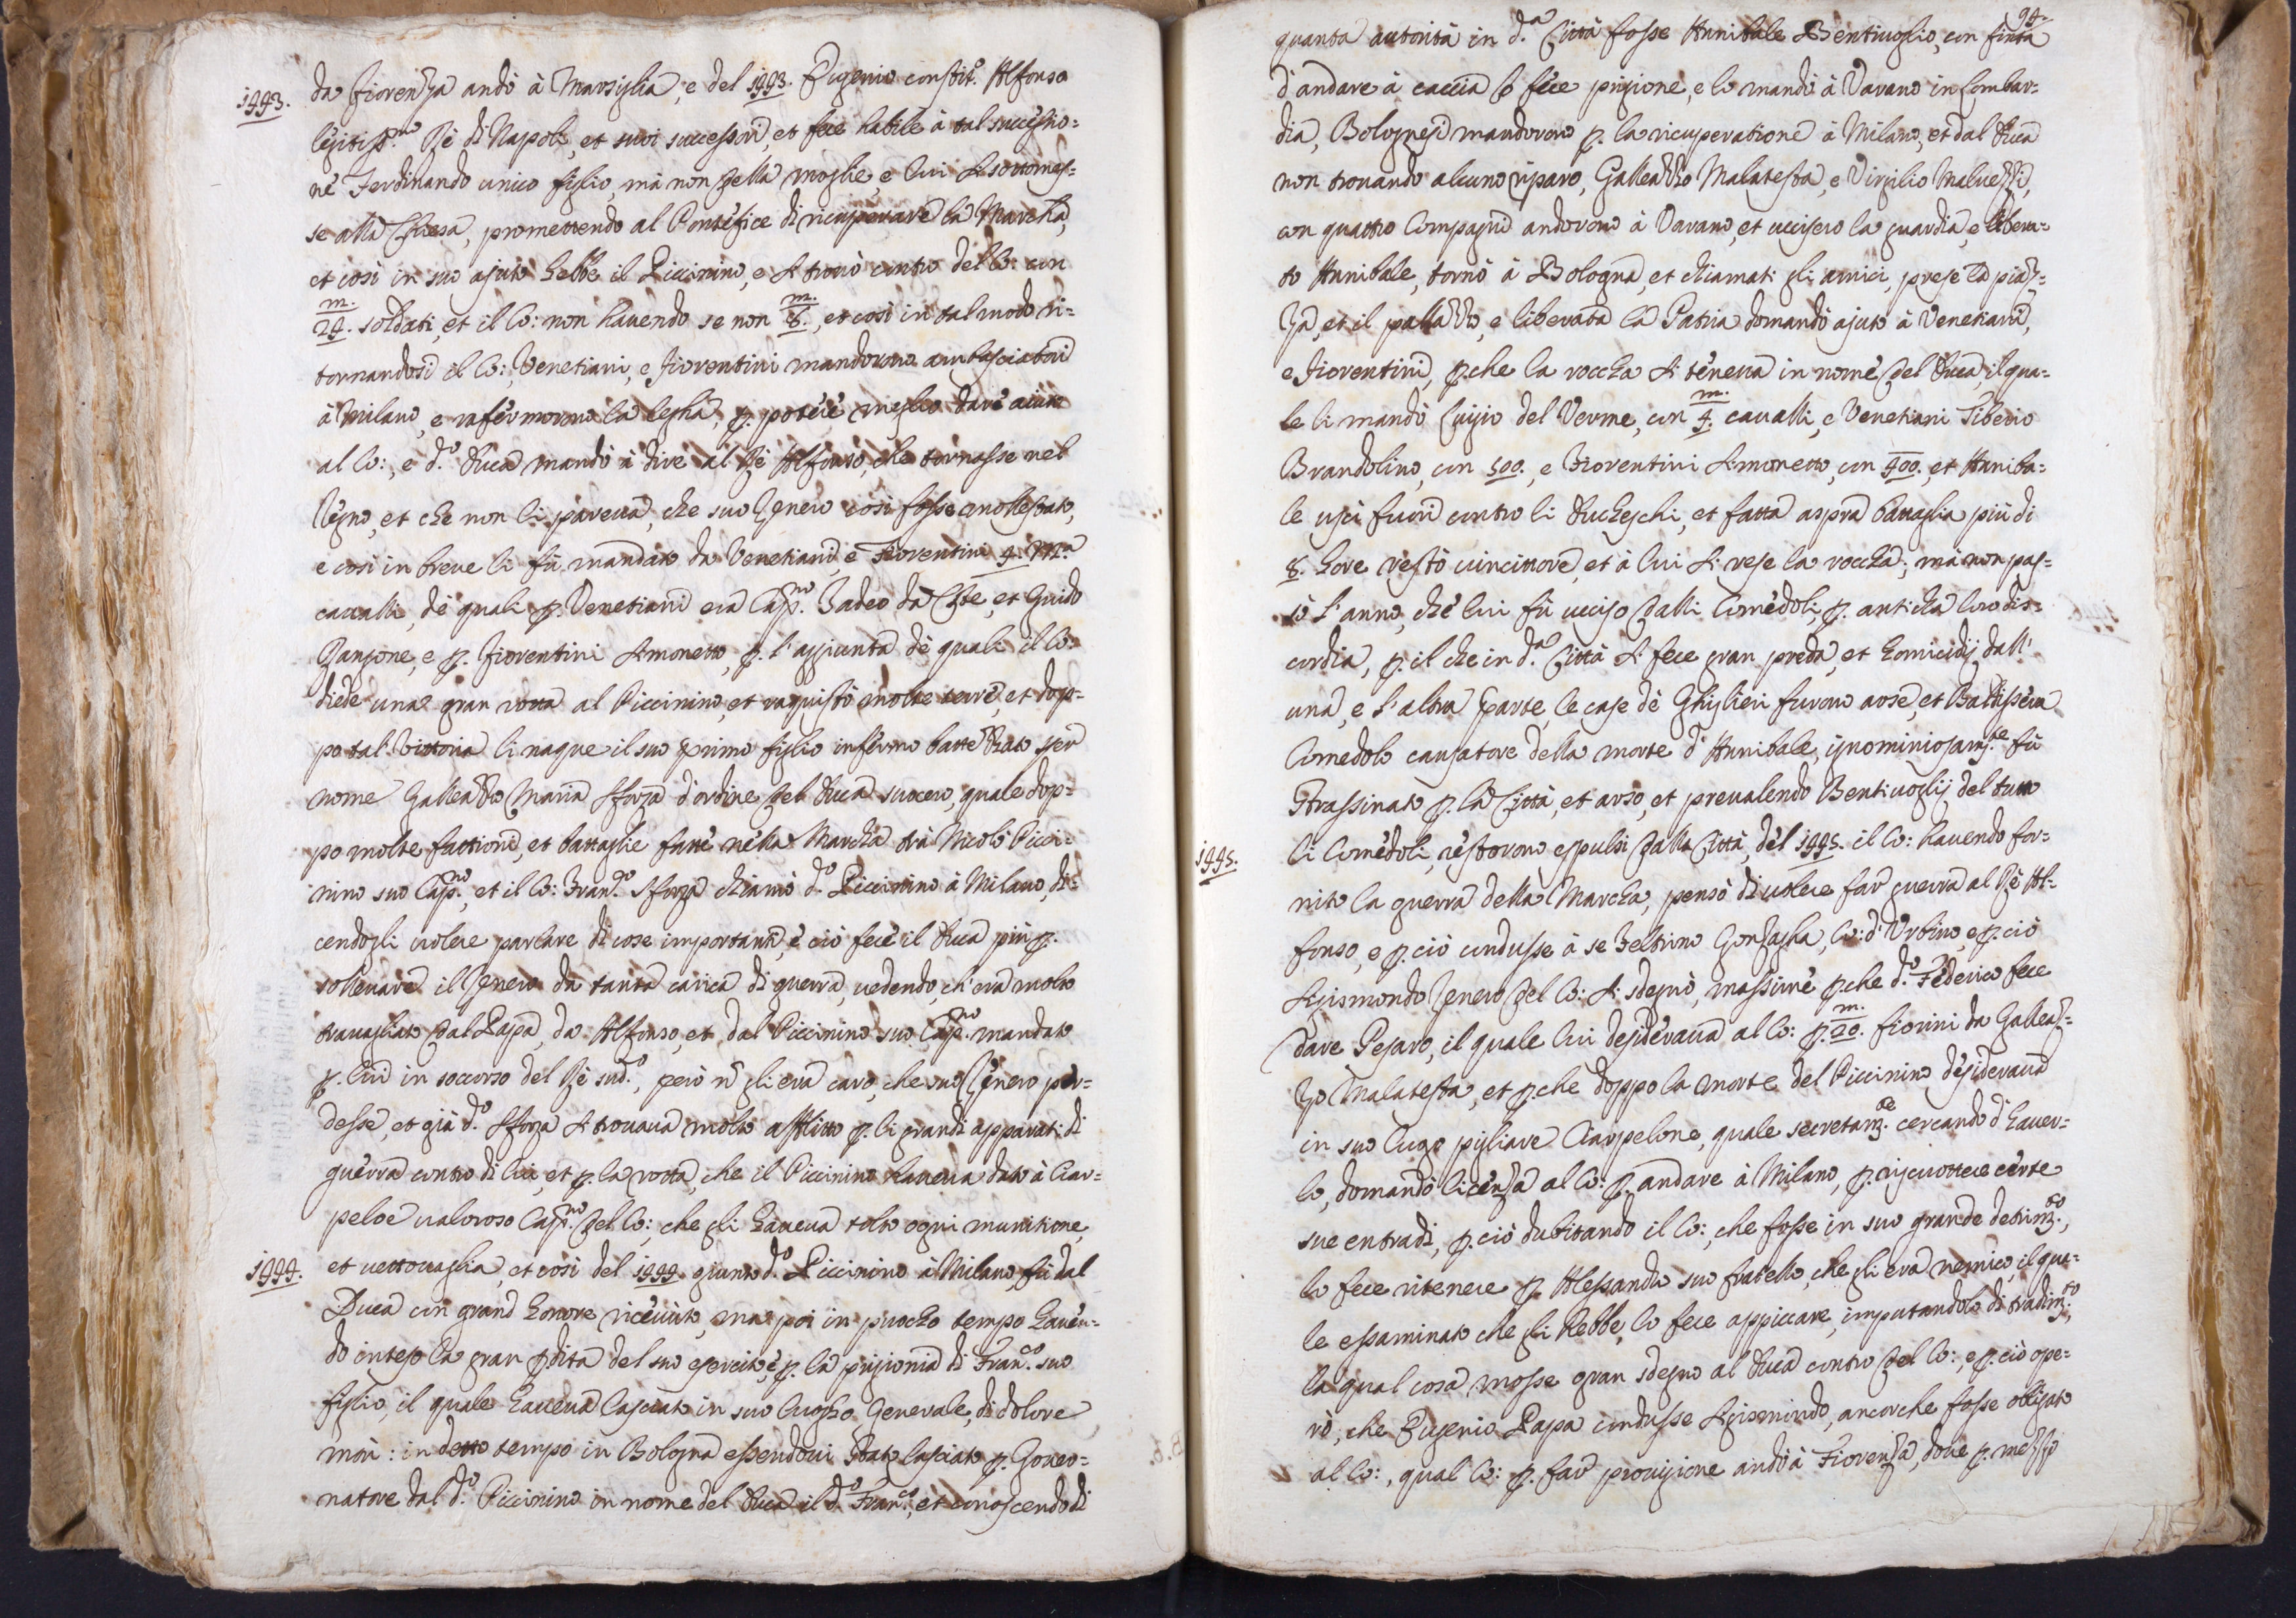 1443. da Fiorenza andò à Marsiglia, e del 1443. Eugenio constit.º Alfonso
legitiss.mo Rè di Napoli, et suoi successori, et fece habile à tal successio=
ne Ferdinando unico figlio, mà non della moglie, e lui si sottomes=
se alla Chiesa, promettendo al Pontefice di ricuperare la Marcha,
et così in suo ajuto hebbe il Piccinino, e si trovò contro del Co: con
24.m. soldati, et il Co: non havendo se non 8.m., et così in tal modo ri=
tornandosi il Co:, Venetiani, e Fiorentini mandorono ambasciatori
à Milano, e rafermorono la legha, p. potere meglio dare aiuto
al Co:, e d.º Duca mandò à dire al Rè Alfonso, che tornasse nel
Regno, et che non li pareva, che suo Genero così fosse mollestato,
e così in breve li fù mandato da Venetiani, e Fiorentini 4. m.a
cavalli, dè quali p. Venetiani era Cap.no Tadeo da Este, et Guido
Rangone, e p. Fiorentini Simonetto, p. l'aggiunta dè quali il Co:
diede una gran rotta al Piccinino, et raquistò molte terre, et dop=
po tal vittoria li naque il suo primo figlio infermo battezzato per
nome Galleazzo Maria Sforza d'ordine del Duca suocero, quale dop=
po molte fattioni, et battaglie fatte nella Marcha trà Nicolò Picci=
nino suo Cap.no, et il Co: Fran.co Sforza chiamò d.º Piccinino à Milano, di=
cendogli volere parlare di cose importanti, e ciò fece il Duca più p.
sollevare il Genero da tanta carica di guerra, vedendo, ch'era molto
travagliato dal Papa, da Alfonso, et dal Piccinino suo Cap.no mandato
p. lui in soccorso del Rè sud.º, però ñ gli era caro, che suo Genero per=
desse, et già d.º Sforza si trovava molto afflitto p. li grandi apparati di
guerra contro di lui, et p. la rotta, che il Piccinino haveva dato à Ciar=
peloe valoroso Cap.no del Co:, che gli haveva tolto ogni munitione,
1444. et vettovaglia, et così del 1444. giunto d.º Piccinino à Milano, fù dal
Duca con grand honore ricevuto, ma poi in puocho tempo haven=
do inteso la gran p.dita del suo esercito, e p. la prigionia di Fran.co suo
figlio, il quale haveva lasciato in suo luogho Generale, di dolore
morì: in detto tempo in Bologna essendovi stato lasciato p. Gover=
natore dal d.º Piccinino in nome del Duca il d.º Fran.co, et conoscendo di
94.
quanta autorità in d.a Città fosse Annibale Bentivoglio, con finta
d'andare à caccia lo fece prigione, e lo mandò à Varano in Lombar=
dia, Bolognesi mandorono p. la ricuperatione à Milano, et dal Duca
non trovando alcuno riparo, Galleazzo Malatesta, e Virgilio Malvezzi,
con quattro Compagni andorono à Varano, et uccisero la guardia, e libera=
to Annibale, tornò à Bologna, et chiamati gli amici, prese la piaz=
za, et il pallazzo, e liberata la Patria domandò ajuto à Venetiani,
e Fiorentini, p.che la roccha si teneva in nome del Duca, il qua=
le li mandò Luigio del Verme, con 4.m. cavalli, e Venetiani Tiberio
Brandolino, con 500. e Fiorentini Simonetto, con 400. et Anniba=
le uscì fuori contro li Ducheschi, et fatta aspra battaglia più di
8. hore restò vincittore, et à lui si rese la roccha; mà non pas=
sò l'anno, che lui fù ucciso dalli Canedoli, p. anticha loro dis=
cordia, p. il che in d.a Città si fece gran preda, et homicidij dall'
una, e l'altra parte, le case dè Ghislieri furono arse, et Battisteva
Canedolo causatore della morte d'Annibale, ignominiosam.te fù
strassinato p. la Città, et arso, et prevalendo Bentivoglij del tutto
1445. li Canedoli, restorono espulsi dalla Città, del 1445. il Co: havendo for=
nito la guerra della Marcha, pensò di volere far guerra al Rè Al=
fonso, e p. ciò condusse à se Feltrino Gonzagha, Co: d'Urbino, e p. ciò
Sigismondo Genero del Co: si sdegnò, massime p.che d.º Federico fece
dare Pesaro, il quale lui desiderava al Co: p. 20.m. fiorini da Galleaz=
zo Malatesta, et p.che doppo la morte del Piccinino desiderava
in suo lugo pigliare Ciarpelone, quale secretam.te cercando d'haver=
lo, domandò licenza al Co: p. andare à Milano, p. riscuottere certe
sue entradi, p. ciò dubitando il Co:, che fosse in suo grande detrim.to,
lo fece ritenere p. Alessandro suo fratello, che gli era nemico, il qua=
le essaminato che gli hebbe, lo fece appiccare, imputandolo di tradim.to,
la qual cosa mosse gran sdegno al Duca contro del Co:, e p. ciò ope=
rò, che Eugenio Papa condusse Sigismondo, ancorche fosse obligato
al Co:, qual Co: p. far provisione andò à Fiorenza, dove p. mezzo